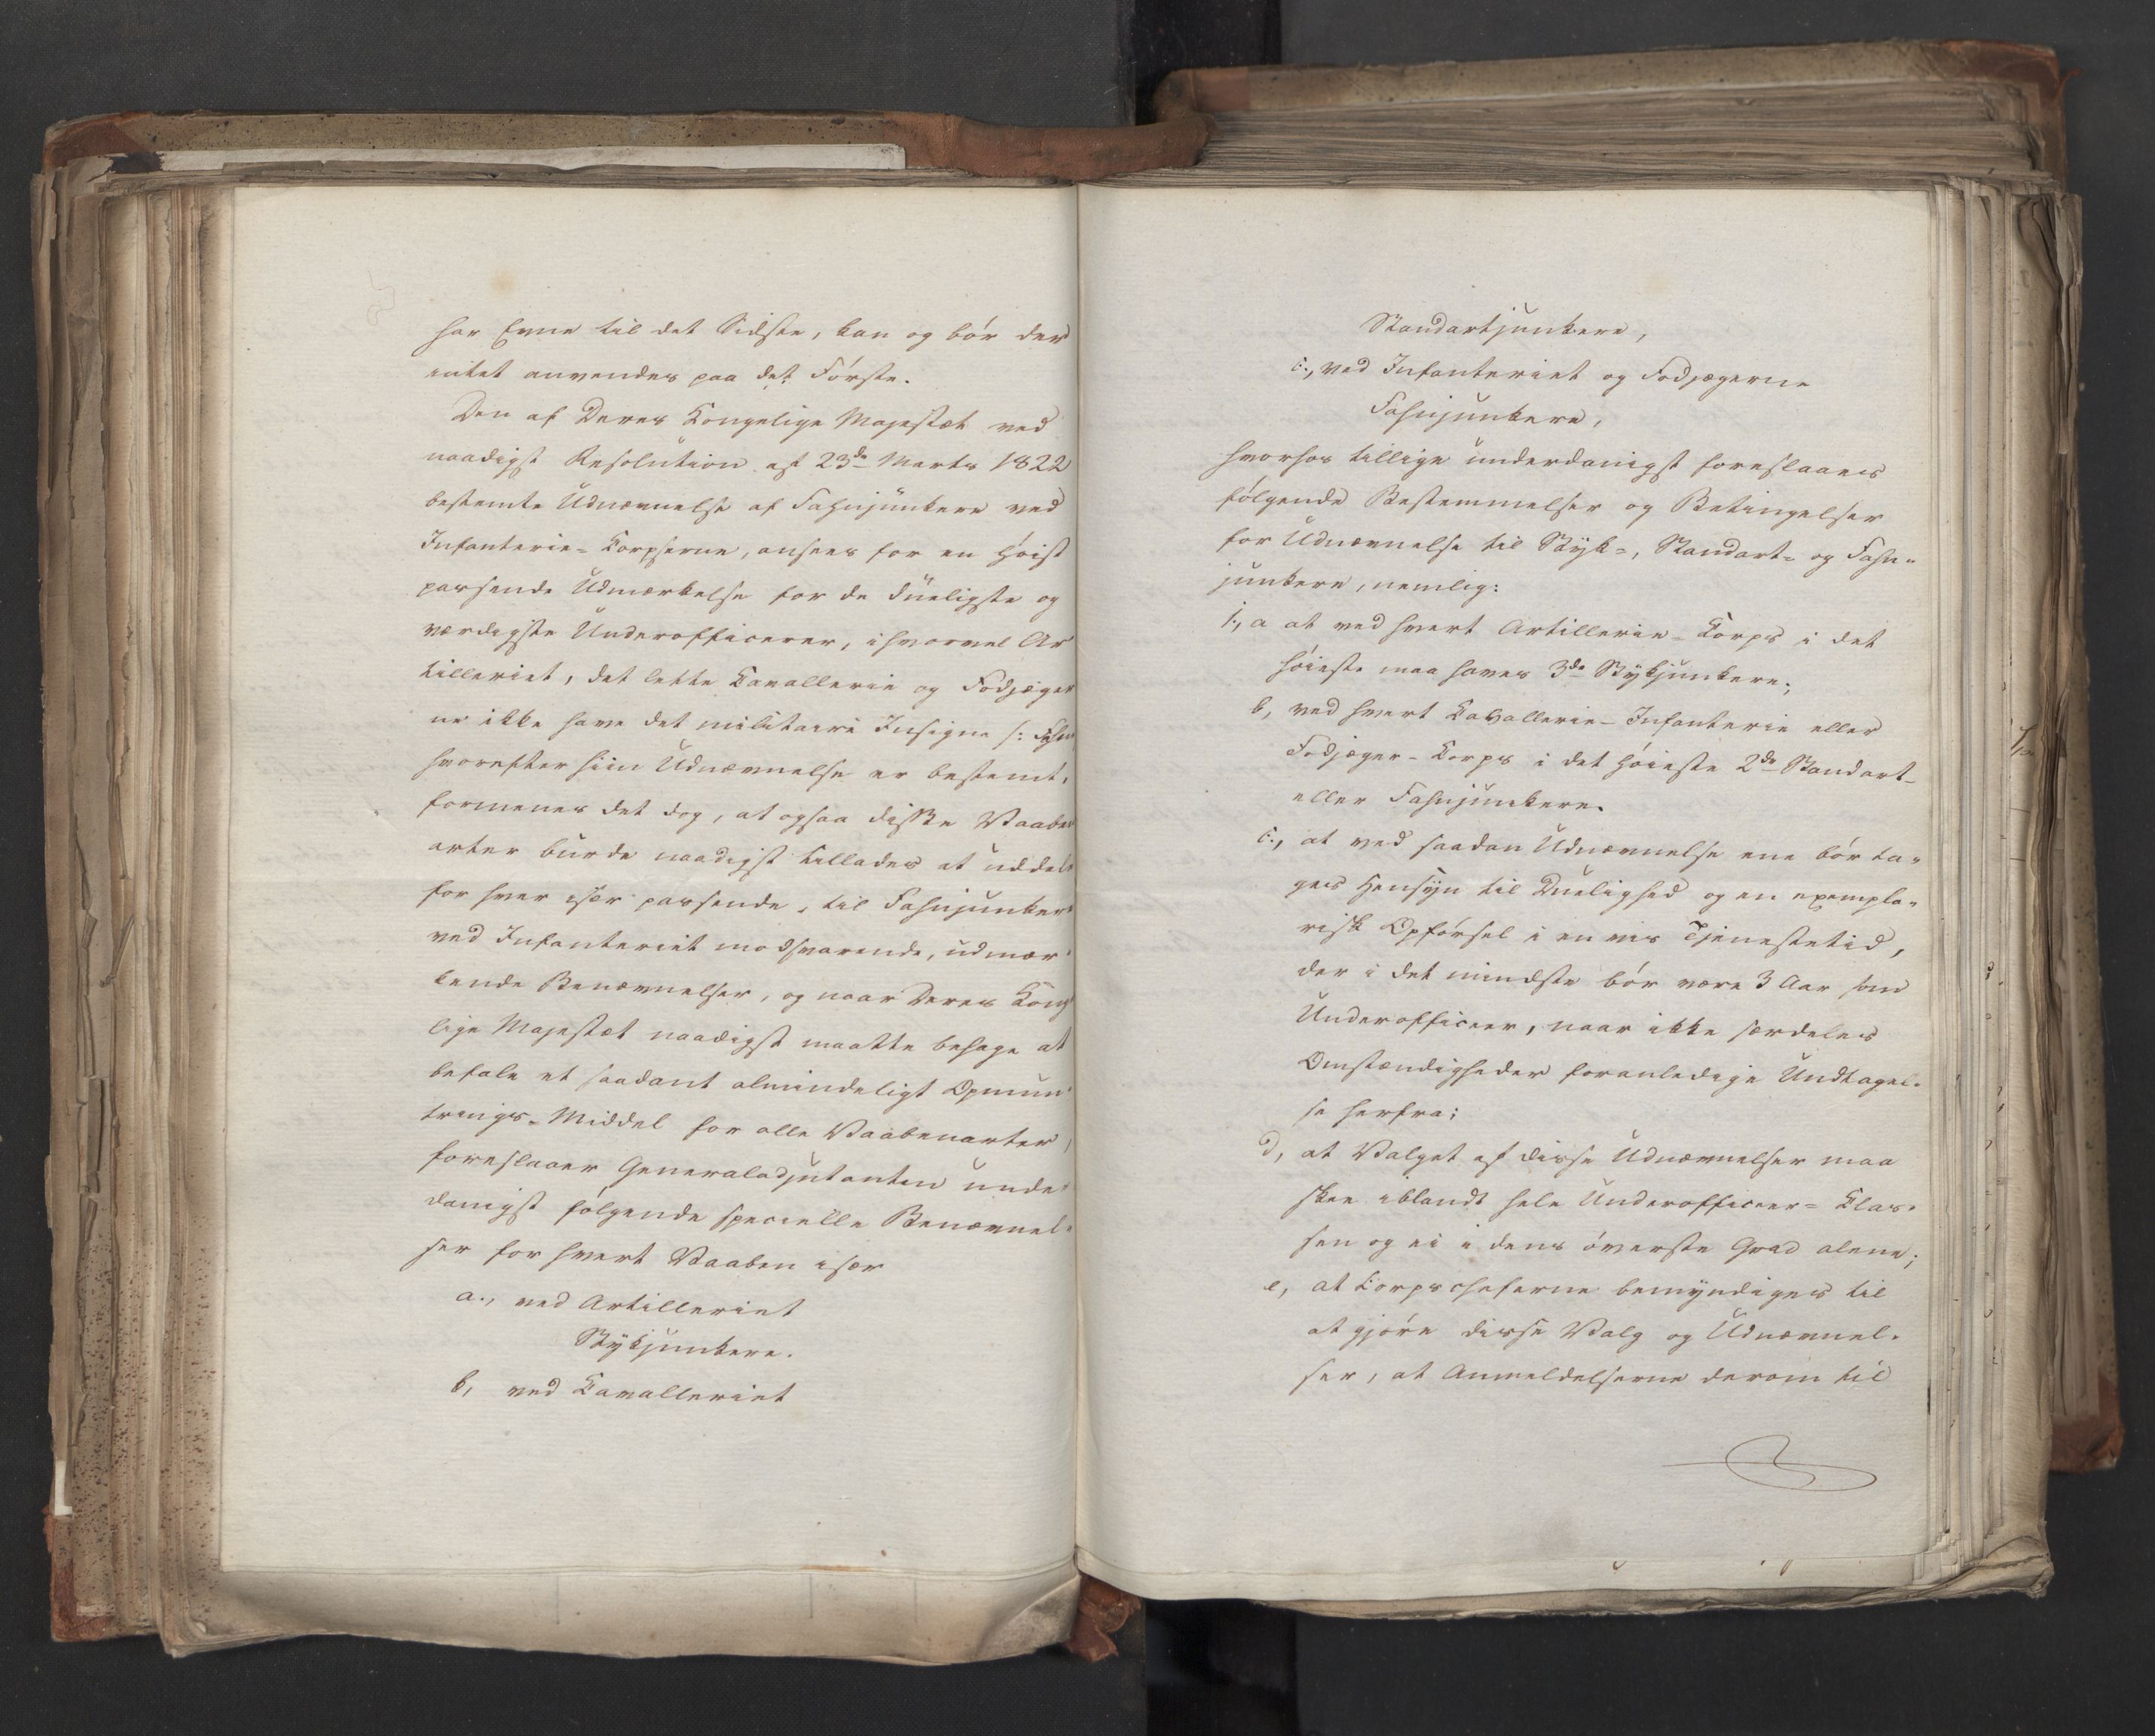 har Evne til det Sidste, kan og bör der
intet anvendes paa det Förste.
Den af Deres Kongelige Majestæt ved
naadigst Resolution af 23de Marts 1822
bestemte Udnævnelse af Fahnjunkere ved
Infanterie-Corpserne, ansees for en höist
passende Udmærkelse for de dueligste og
værdigste Underofficerer, ihvorvel Ar
tilleriet, det lette Cavallerie og Fodjæger
ne ikke have det militaire Insigne /: Fahn
hvorefter hiin Udnævnelse er bestemt,
formenes det dog, at ogsaa disse Vaaben
arter burde naadigst tillades at uddele
for hver især passende, til Fahnjunker
ved Infanteriet modsvarende, udmær
kende Benævnelser, og naar Deres Konge
lige Majestæt naadigst maatte behage at
befale et saadant almindeligt Opmun
trings-Middel for alle Vaabenarter,
foreslaaer Generaladjutanten under
danigst fölgende specielle Benævnel-
ser for hvert Vaaben især
a., ved Artilleriet
Stykjunkere.
b, ved Cavalleriet
Standartjunkere,
c., ved Infanteriet og Fodjægerne
Fahnjunkere,
hvorhos tillige underdanigst foreslaaes
fölgende Bestemmelser og Betingelser
for Udnævnelse til Styk-, Standart- og Fahn-
junkere, nemlig:
1., a at ved hvert Artillerie-Corps i det
höieste maa haves 3de Stykjunkere;
b, ved hvert Cavallerie- Infanterie eller
Fodjæger-Corps i det höieste 2de Standart-
eller Fahnjunkere.
c., at ved saadan Udnævnelse ene bör ta-
ges Hensyn til Duelighed og en exempla-
risk Opförsel i en vis Tjenestetid,
der i det mindste bör være 3 Aar som
Underofficeer, naar ikke særdeles
Omstændigheder foranledige Undtagel-
se herfra;
d, at Valget af disse Udnævnelser maa
skee iblandt hele Underofficeer-Clas-
sen og ei i dens överste Grad alene;
e, at Corpscheferne bemyndiges til
at gjöre disse Valg og Udnævnel-
ser, at Anmeldelserne derom til